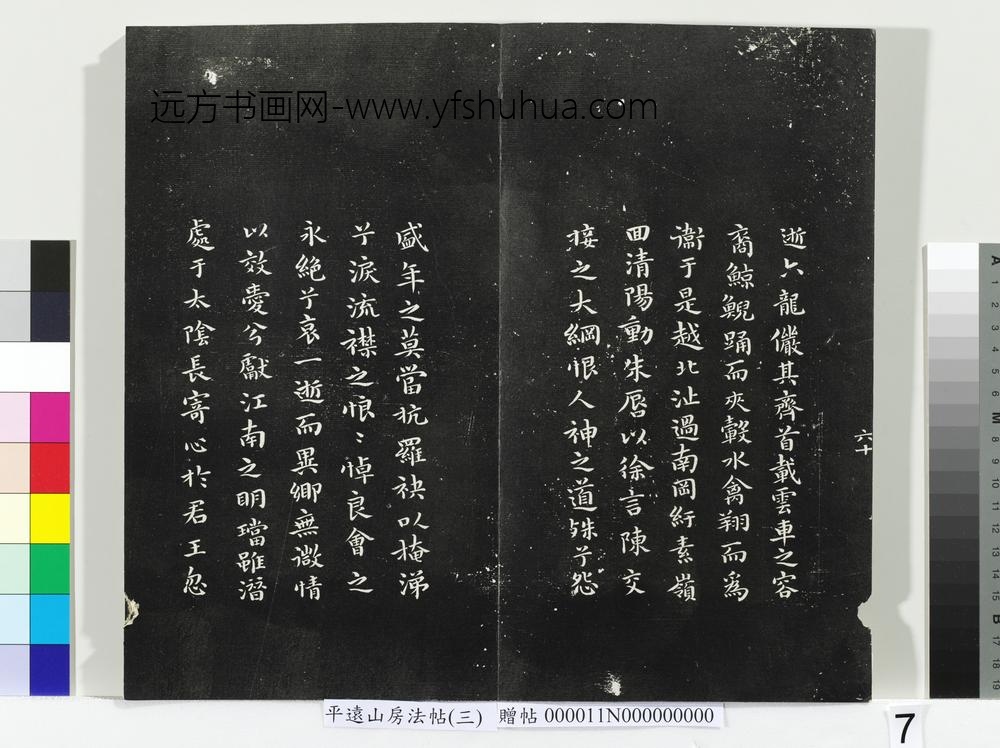 远方书画网-www.yfshuhua.com
逝六龍儼其齊首載雲車之容
裔鯨鯢踊而夾轂水禽翔而爲
衞于是越北沚過南岡紆素嶺
回清陽動朱脣以徐言陳交
接之大綱恨人神之道殊兮怨
盛年之莫當抗羅袂以掩涕
兮淚流襟之恨〻悼良會之
永絕兮哀一逝而異鄉無微情
以效愛兮獻江南之明璫雖潛
處于太陰長寄心於君王忽
六十
平遠山房法帖(三) 贈帖 000011N000000000
7
A 1 2 3 4 5 6 M 8 9 10 11 12 13 14 15 B 17 18 19